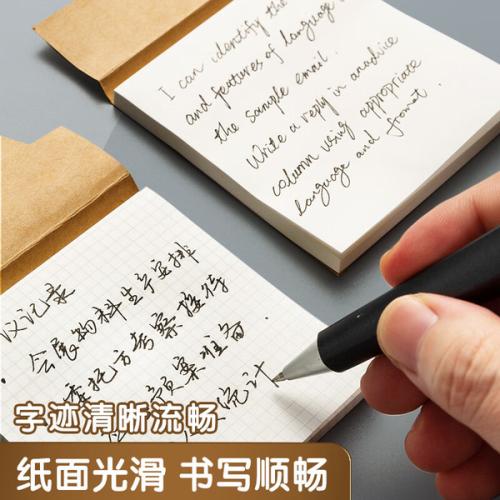 I can identify the
and features of language i
the sample email.
Write a reply in anadvice
column using appropriate
language and fromat.
议记录
会展物料生产安排
委托方考察接待
预案准备
统计
字迹清晰流畅
纸面光滑 书写顺畅